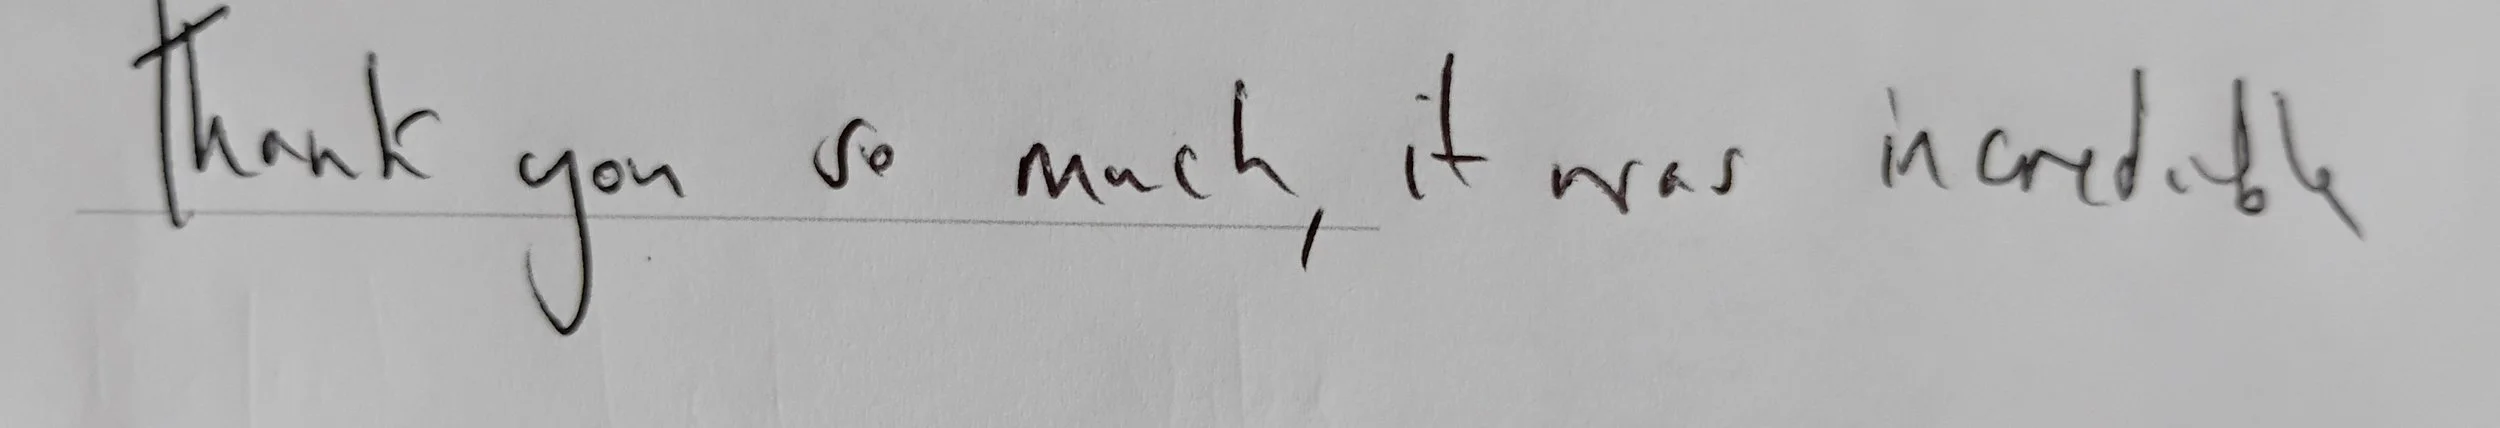 Thank you so much, it was incredible